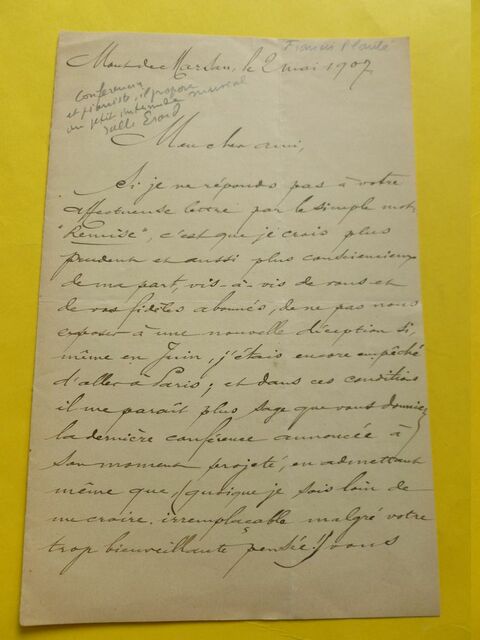 Francis Planté
Mont de Marsan, le 2 mai 1907
Conférencier
et pianiste, il propose
un petit intermède musical
salle Erard
Mon cher ami,
Si je ne réponds pas à votre
affectueuse lettre par le simple mot
"Remise", c'est que je crois plus
prudent et aussi plus consciencieux
de ma part, vis-à-vis de vous et
de vos fidèles abonnés, de ne pas nous
exposer à une nouvelle déception si,
même en Juin, j'étais encore empêché
d'aller à Paris; et dans ces conditions
il me paraît plus sage que vous donniez
la dernière conférence annoncée à
son moment projeté, en admettant
même que, (quoique je sois loin de
me croire irremplaçable malgré votre
trop bienveillante pensée!) vous